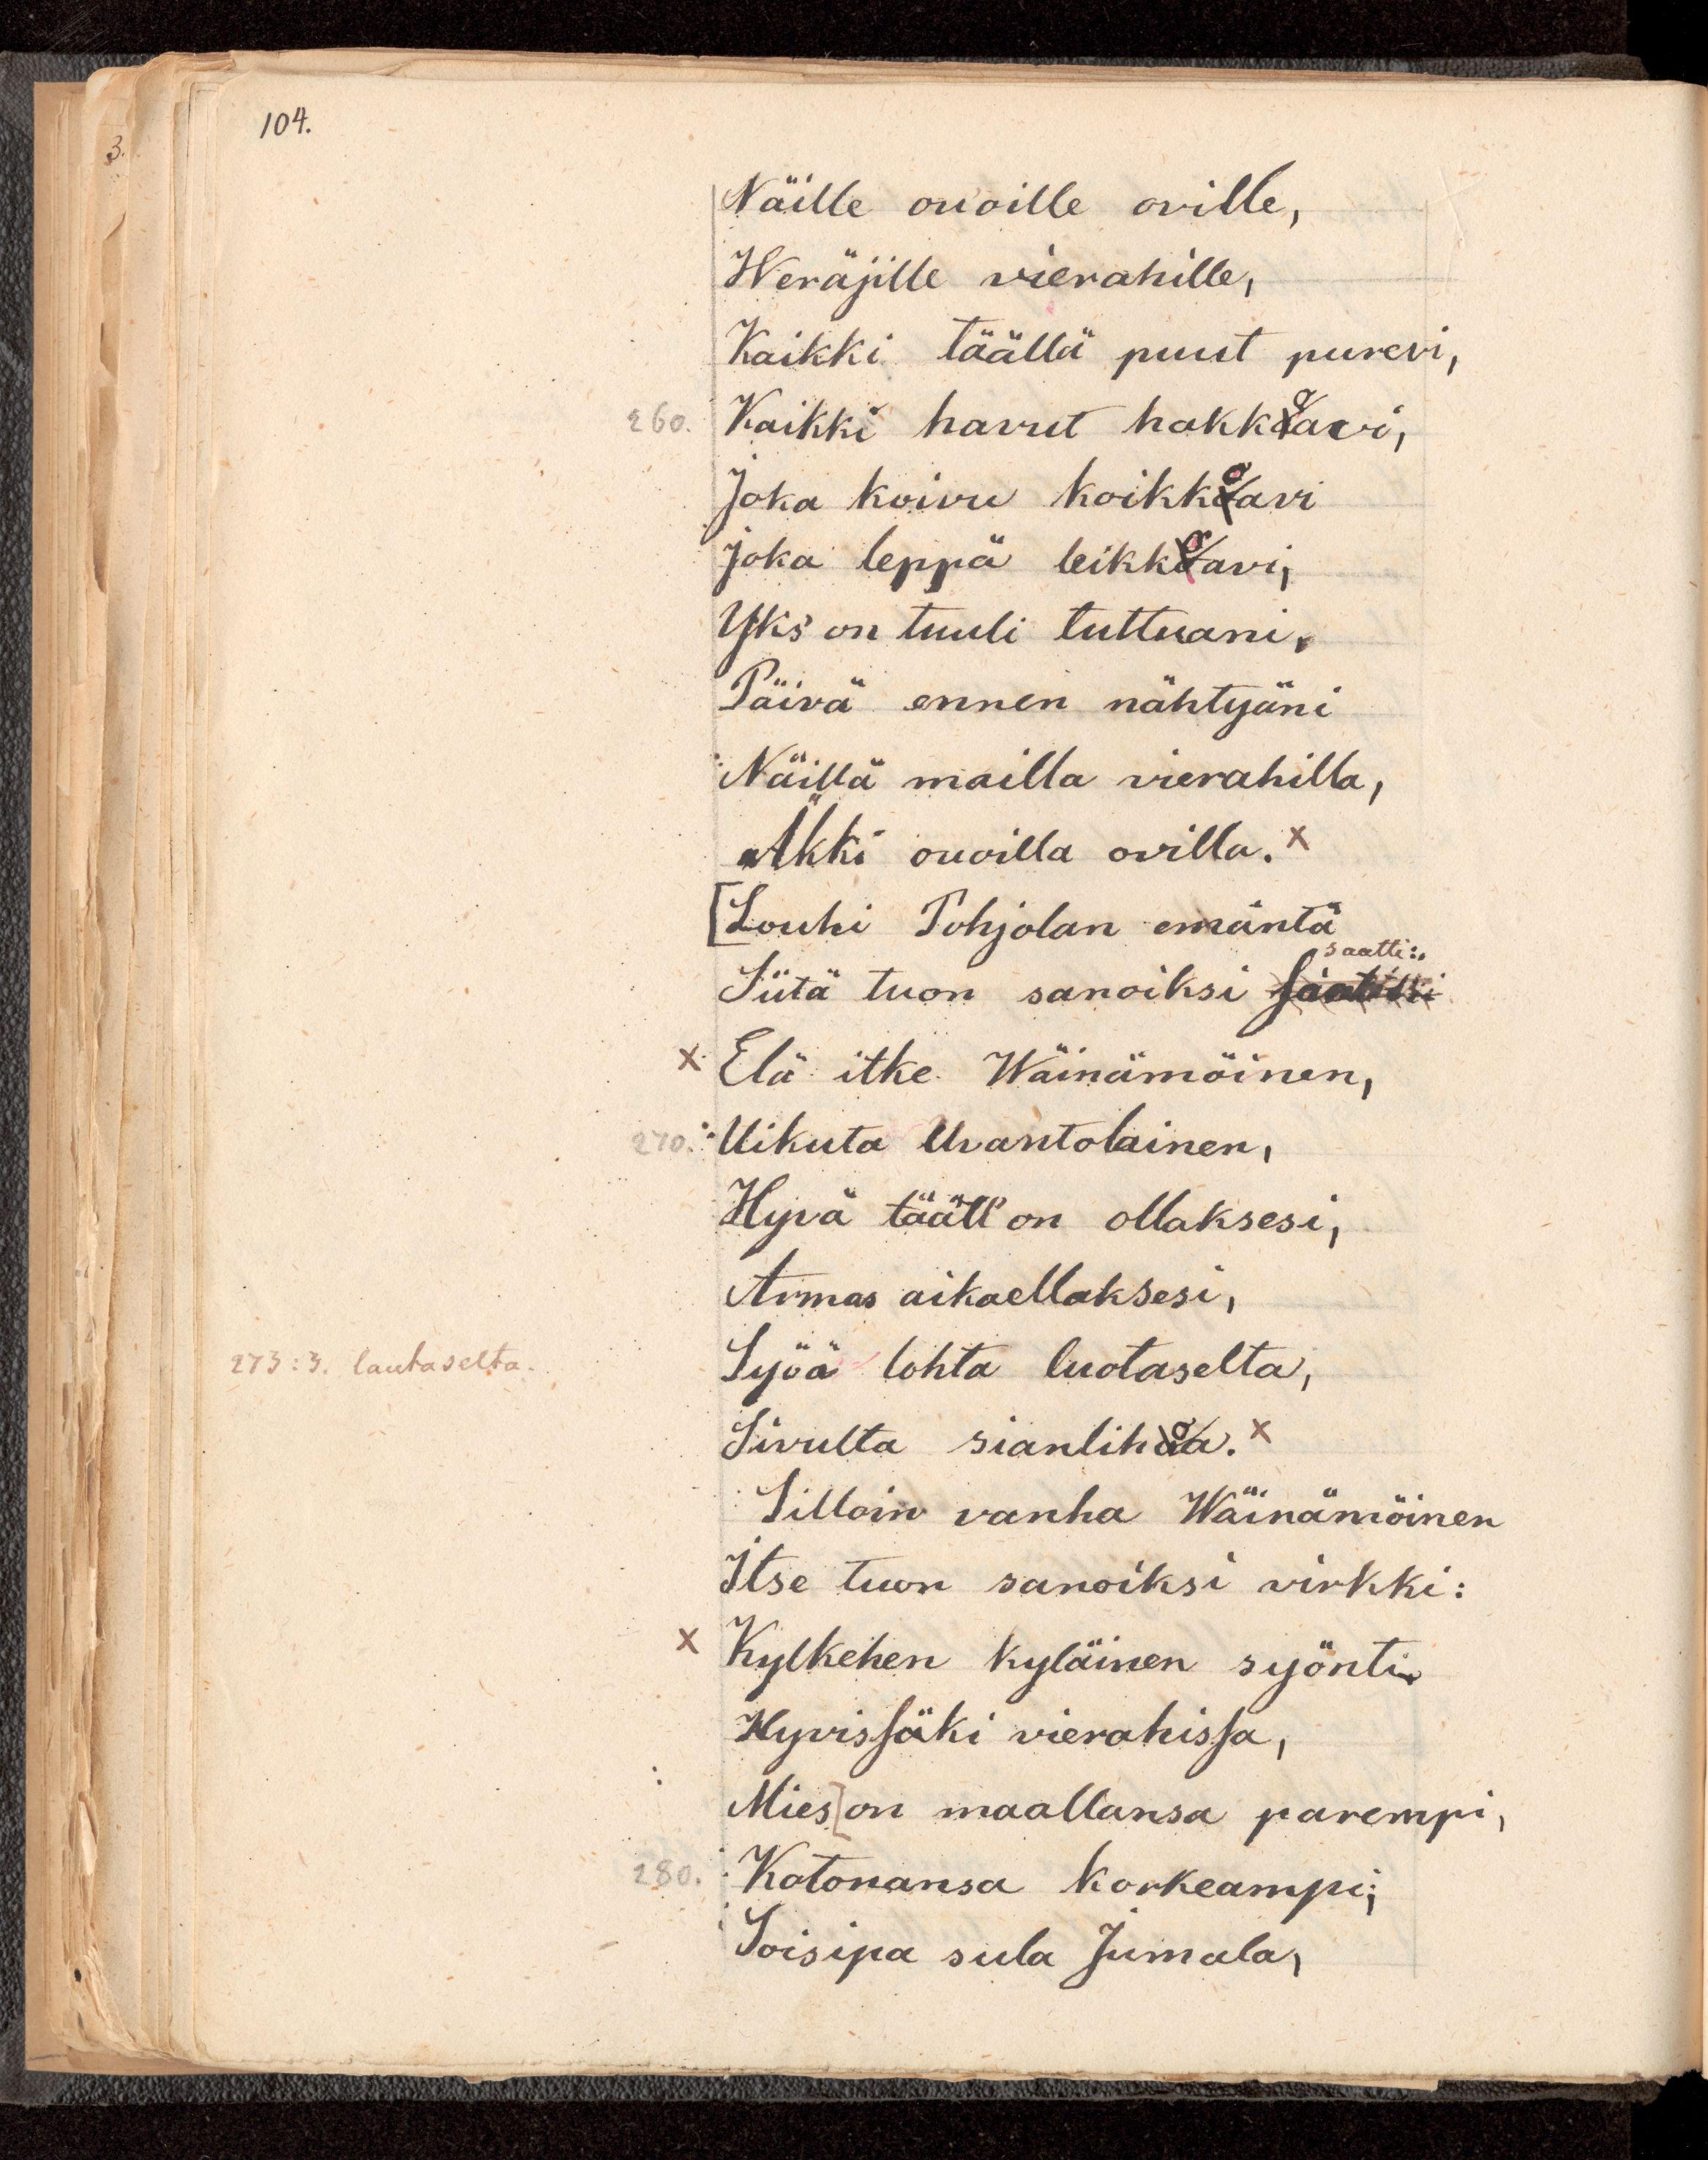 104.
3.
Näille ouoille oville,
Weräjille vierahille,
Kaikki täällä puut purevi,
260. Kaikki havut hakkaavi,
Joka koivu koikkaavi
Joka leppä leikkaavi;
Yks on tuuli tuttuani,
Päivä ennen nähtyäni
Näillä mailla vierahilla,
Äkki ouoilla ovilla. x
[Louhi Pohjolan emäntä
saatti:
Siitä tuon sanoiksi
x Elä itke Wäinämöinen,
270. Uikuta Uvantolainen,
Hyvä tääll' on ollaksesi,
Armas aikaellaksesi,
273:3. lautaselta. Syöä lohta luotaselta,
Sivulta sianlihaa. x
Silloin vanha Wäinämöinen
Itse tuon sanoiksi virkki:
x Kylkehen kyläinen syönti
Hyvisſäki vierahisſa,
Mies] on maallansa parempi,
280. Kotonansa korkeampi;
Soisipa sula Jumala,